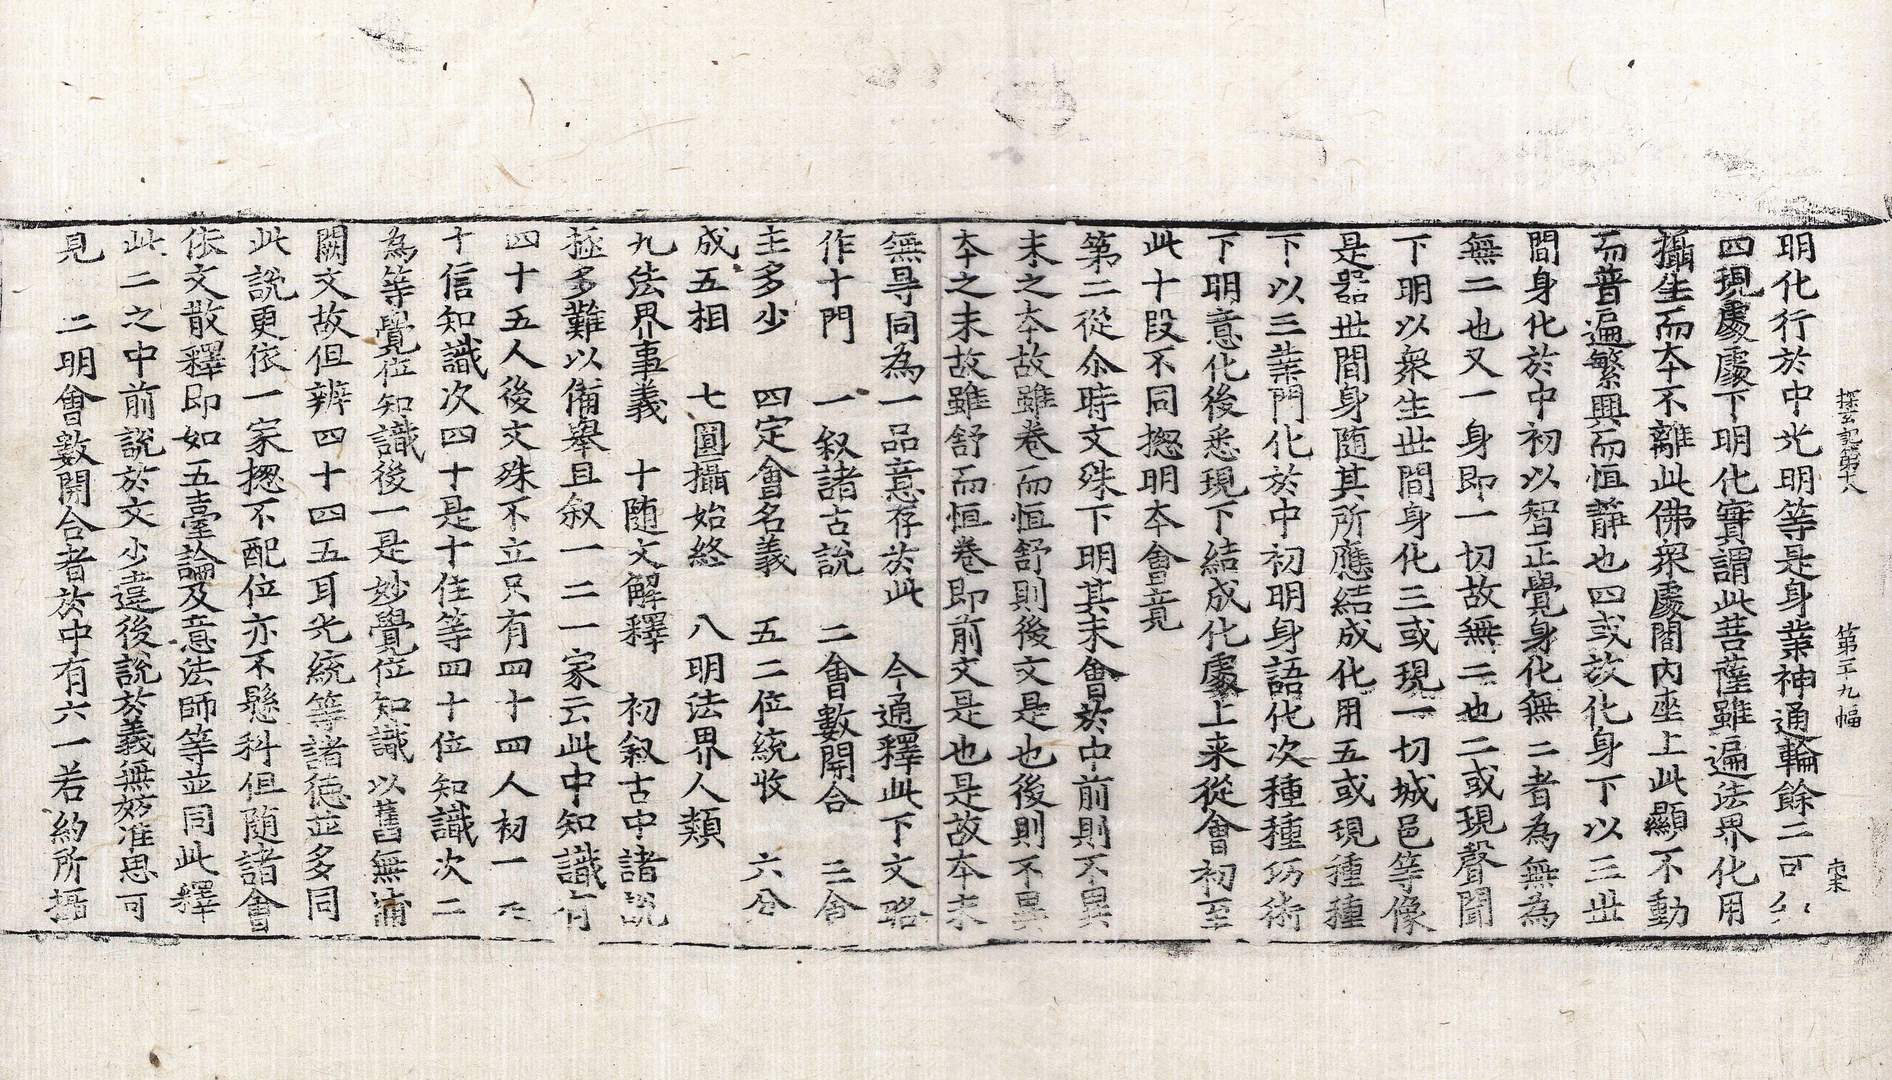 探玄記第十八　第三十九幅
明化行於中光明等是身業神通輪餘二可
四現處處下明化實謂此菩薩雖遍法界化用
攝生而夲不離此佛衆處閻内座上此顯不動
而普遍繁興而恒静也四或放化身下以三丗
間身化於中初以智正覺身化無二者為無為
無二也又一身即一切故無二也二或現聲聞
下明以衆生丗間身化三或現一切城邑等像
是器丗間身随其所應結成化用五或現種種
下以三業門化於中初明身語化次種種巧術
下明意化後悉現下結成化處上来從會初至
此十段不同揔明夲會竟
第二從尒時文殊下明其末會於中前則不異
末之夲故雖卷而恒舒則後文是也後則不異
夲之末故雖舒而恒卷即前文是也是故夲末
無㝵同為一品意存於此　今通釋此下文略
作十門　一叙諸古說　二會數開合　三會
主多少　四定會名義　五二位統收　六分
成五相　七圓攝始終　八明法界人類
九法界事義　十随文解釋　初叙古中諸說
極多難以備舉且叙一二一家云此中知識有
四十五人後文殊不立只有四十四人初一是
十信知識次四十是十住等四十位知識次二
為等覺位知識後一是妙覺位知識以舊無補
闕文故但辨四十四五耳光統等諸德並多同
此說更依一家揔不配位亦不懸科但随諸會
依文散釋即如五臺論及意法師等並同此釋
此二之中前說於文少違後說於義無妨准思可
見　二明會數開合者於中有六一若約所攝